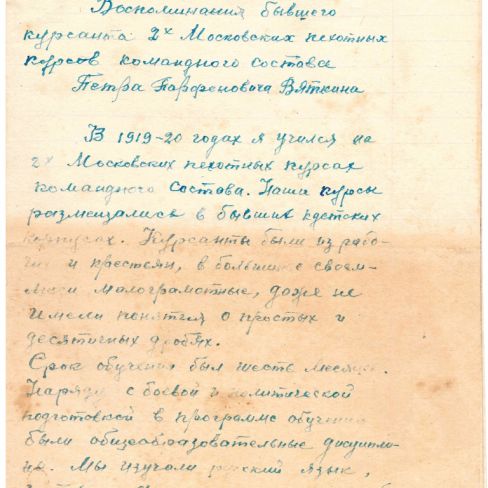 Воспоминания бывшего
курсанта 2х Московских пехотных
курсов командного состава
Петра Парфеновича Вяткина
В 1919-20 годах я учился на
2х Московских пехотных курсах
командного состава. Наши курсы
размещались в бывших кадетских
корпусах. Курсанты были из рабо-
чих и крестьян, в большинс с своем-
малограмотные, даже не
имели понятия о простых и
десятичных дробях.
Срок обучения был шесть месяцев.
Наряду с боевой и политической
подготовкой в программе обучения
были общеобразовательные дисципли-
не. Мы изучали русский язык,